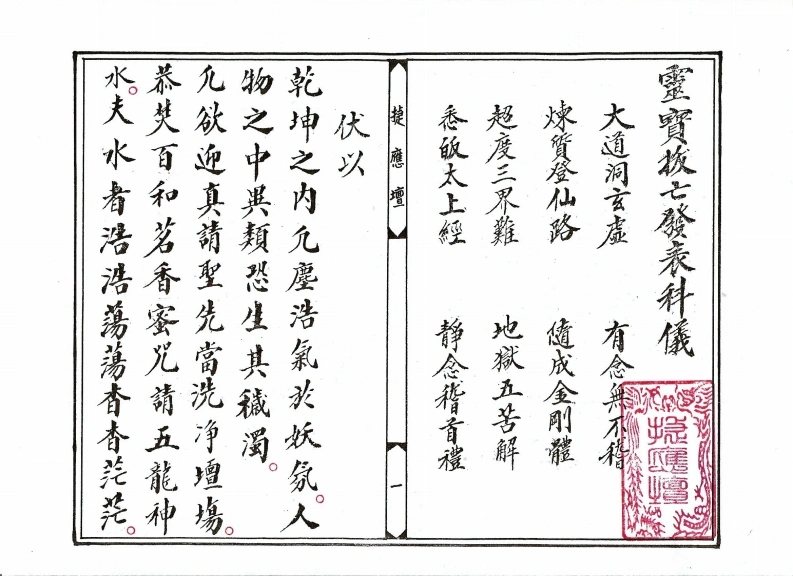 靈寶拔亡發表科儀
大道洞玄虛 有念無不稽
煉質登仙路 隨成金剛體
超度三界難 地獄五苦解
悉皈太上經 靜念稽首禮
捷應壇
一
伏以
乾坤之內凢塵浩氣於妖氛。人
物之中異類恐生其穢濁。
凢欲迎真請聖先當洗净壇場。
恭焚百和茗香蜜咒請五龍神
水。夫水者浩浩蕩蕩杳杳茫茫。
捷應壇